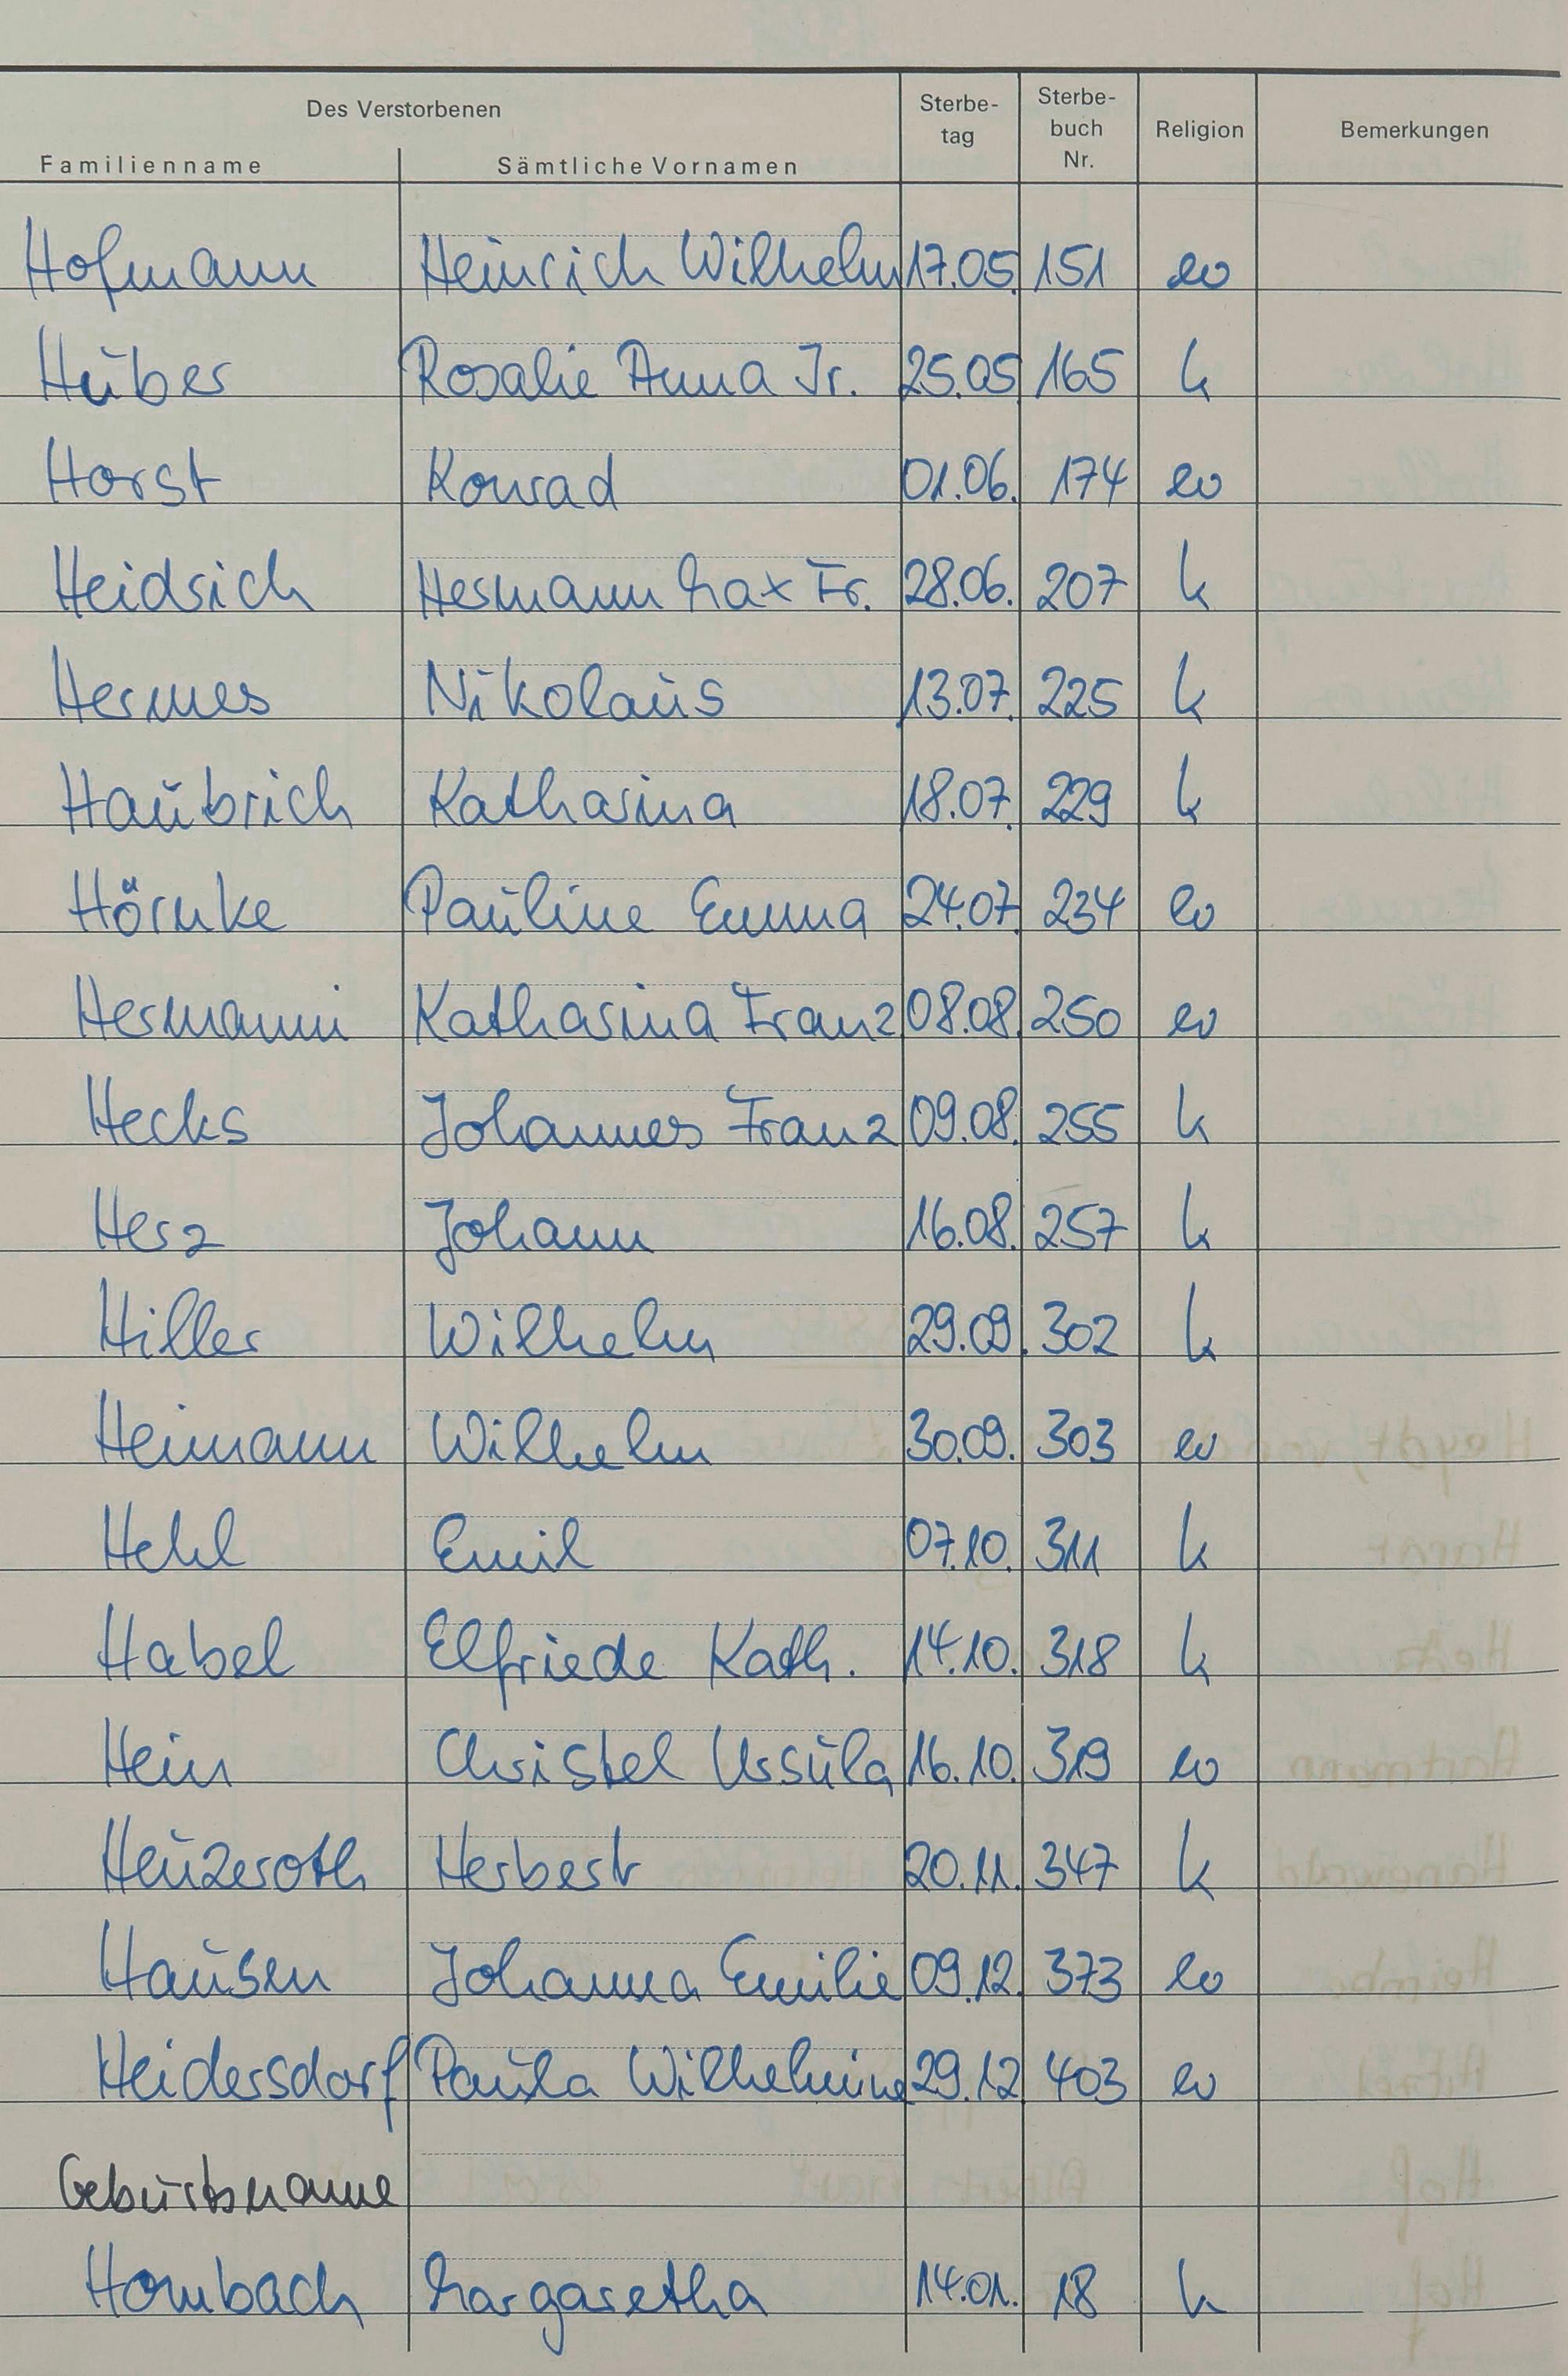 Des Verstorbenen
Familienname Sämtliche Vornamen Sterbe-tag Sterbe-buch Nr. Religion Bemerkungen
Hofmann Heinrich Wilhelm 17.05. 151 ev
Huber Rosalie Anna Ir. 25.05 165 k
Horst Konrad 01.06. 174 ev
Heidrich Hermann Max Fr. 28.06. 207 k
Hermes Nikolaus 13.07. 225 k
Haubrich Katharina 18.07. 229 k
Hörnke Pauline Emma 24.07. 234 ev
Hermanni Katharina Franz 08.08. 250 ev
Hecks Johannes Franz 09.08. 255 k
Herz Johann 16.08. 257 k
Hiller Wilhelm 29.09. 302 k
Heimann Wilhelm 30.09. 303 ev
Hehl Emil 07.10. 311 k
Habel Elfriede Kath. 14.10. 318 k
Hein Christel Ursula 16.10. 319 ev
Heuzeroth Herbert 20.11. 347 k
Hausen Johanna Emilie 09.12. 373 ev
Heidersdorf Paula Wilhelmine 29.12. 403 ev
Geburtsname
Hombach Margaretha 14.01. 18 k